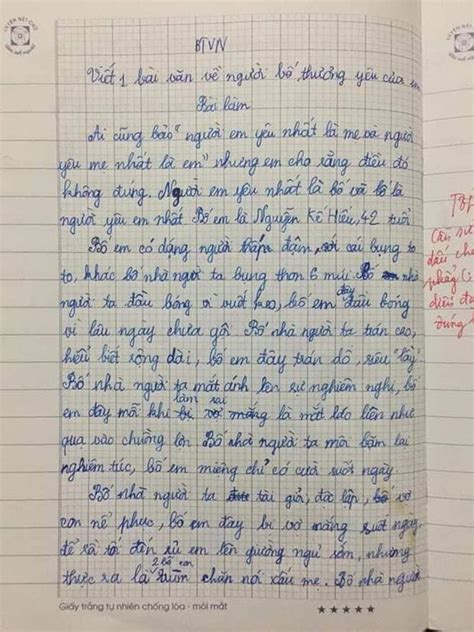 BTVN
Viết 1 bài văn về người bố thương yêu của em
Bài làm
Ai cũng bảo "người em yêu nhất là mẹ và người
yêu mẹ nhất là em" nhưng em cho rằng điều đó
không đúng. Người em yêu nhất là bố và bố là
người yêu em nhất. Bố em là Nguyễn Kế Hiếu, 42 tuổi.
Bố em có dáng người thấp đậm, với cái bụng to
to, khác bố nhà người ta bụng thon 6 múi. Bố nhà
người ta đầu bóng vì vuốt keo, bố em đây đầu bóng
vì lâu ngày chưa gội. Bố nhà người ta trán cao,
hiểu biết rộng dài, bố em đây trán dô, siêu "lầy"
Bố nhà người ta mắt ánh lên sự nghiêm nghị, bố
em đây mỗi khi làm sai bị vợ mắng là mắt láo liên như
quạ vào chuồng lợn. Bố nhà người ta môi bặm lại
nghiêm túc, bố em miệng chỉ có cười suốt ngày.
Bố nhà người ta tài giỏi, độc lập, vợ
con nể phục, bố em đây bị vợ mắng suốt ngày
để rồi tối đến rủ em lên giường ngủ sớm, nhưng
thực ra là 2 bố con trùm chăn nói xấu mẹ. Bố nhà người
Giấy trắng tự nhiên chống lóa - mỏi mắt
Câu sử
dấu
phẩy (,
đúng